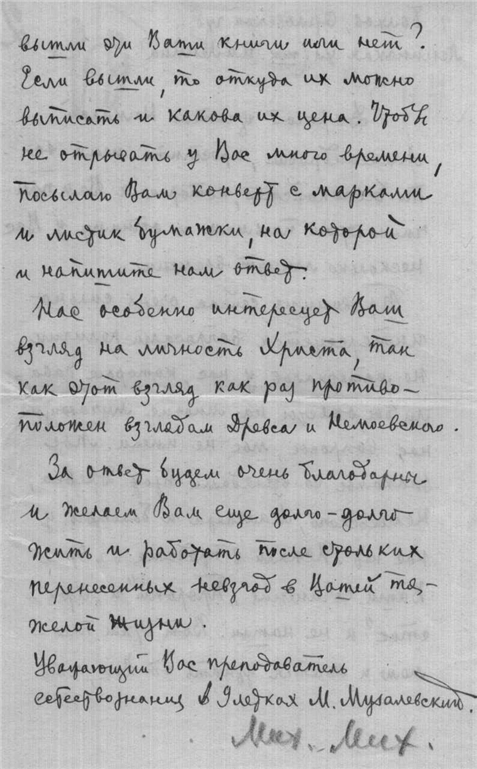 вышли эти Ваши книги или нет?
Если вышли, то откуда их можно
выписать и какова их цена. Чтобы
не отрывать у Вас много времени,
посылаю Вам конверт с марками
и листик бумажки, на которой
и напишите нам ответ.
Нас особенно интересует Ваш
взгляд на личность Христа, так
как этот взгляд как раз противо-
положен взглядам Древса и Немоевского.
За ответ будем очень благодарны
и желаем Вам еще долго-долго
жить и работать после стольких
перенесенных невзгод в Вашей тя-
желой жизни.
Уважающий Вас преподаватель
естествознания в Эледках М. Музалевский.
Мих. Мих.